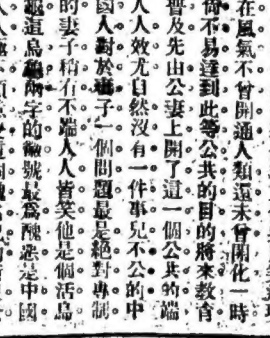 在風氣不曾開通人類還未曾開化一時
尙不易達到此等公共的目的將來敎育
普及先由公妻上開了這一個公共的端
人人效尤自然沒有一件事兒不公的中
國人對於妻子一個問題最是絕對專制
的妻子稍有不端人人皆笑他是個活烏
龜這烏龜兩字的徽號最爲醜惡是中國